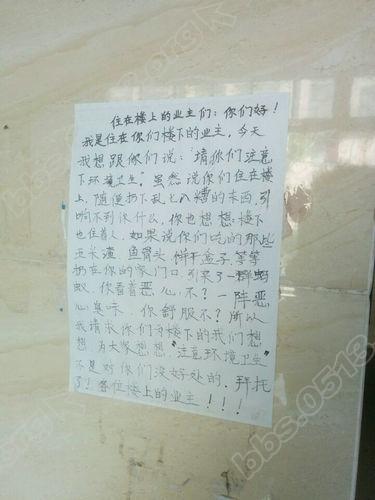 住在楼上的业主们：你们好！
我是住在你们楼下的业主，今天
我想跟你们说：“请你们注意
下环境卫生”。虽然说你们住在楼
上，随便扔下乱七八糟的东西，引
响不到你什么，你也想想，楼下
也住着人，如果说你们吃的那些
玉米渣、鱼骨头、饼干盒子等等
扔在你的家门口，引来了一群蚂
蚁，你看着恶心不？一阵恶
心臭味，你舒服不？所以
我请求你们为楼下的我们想
想，为大家想想，“注意环境卫生”
不是对你们没好处的，拜托
了！各位楼上的业主！！！
bbs.0513